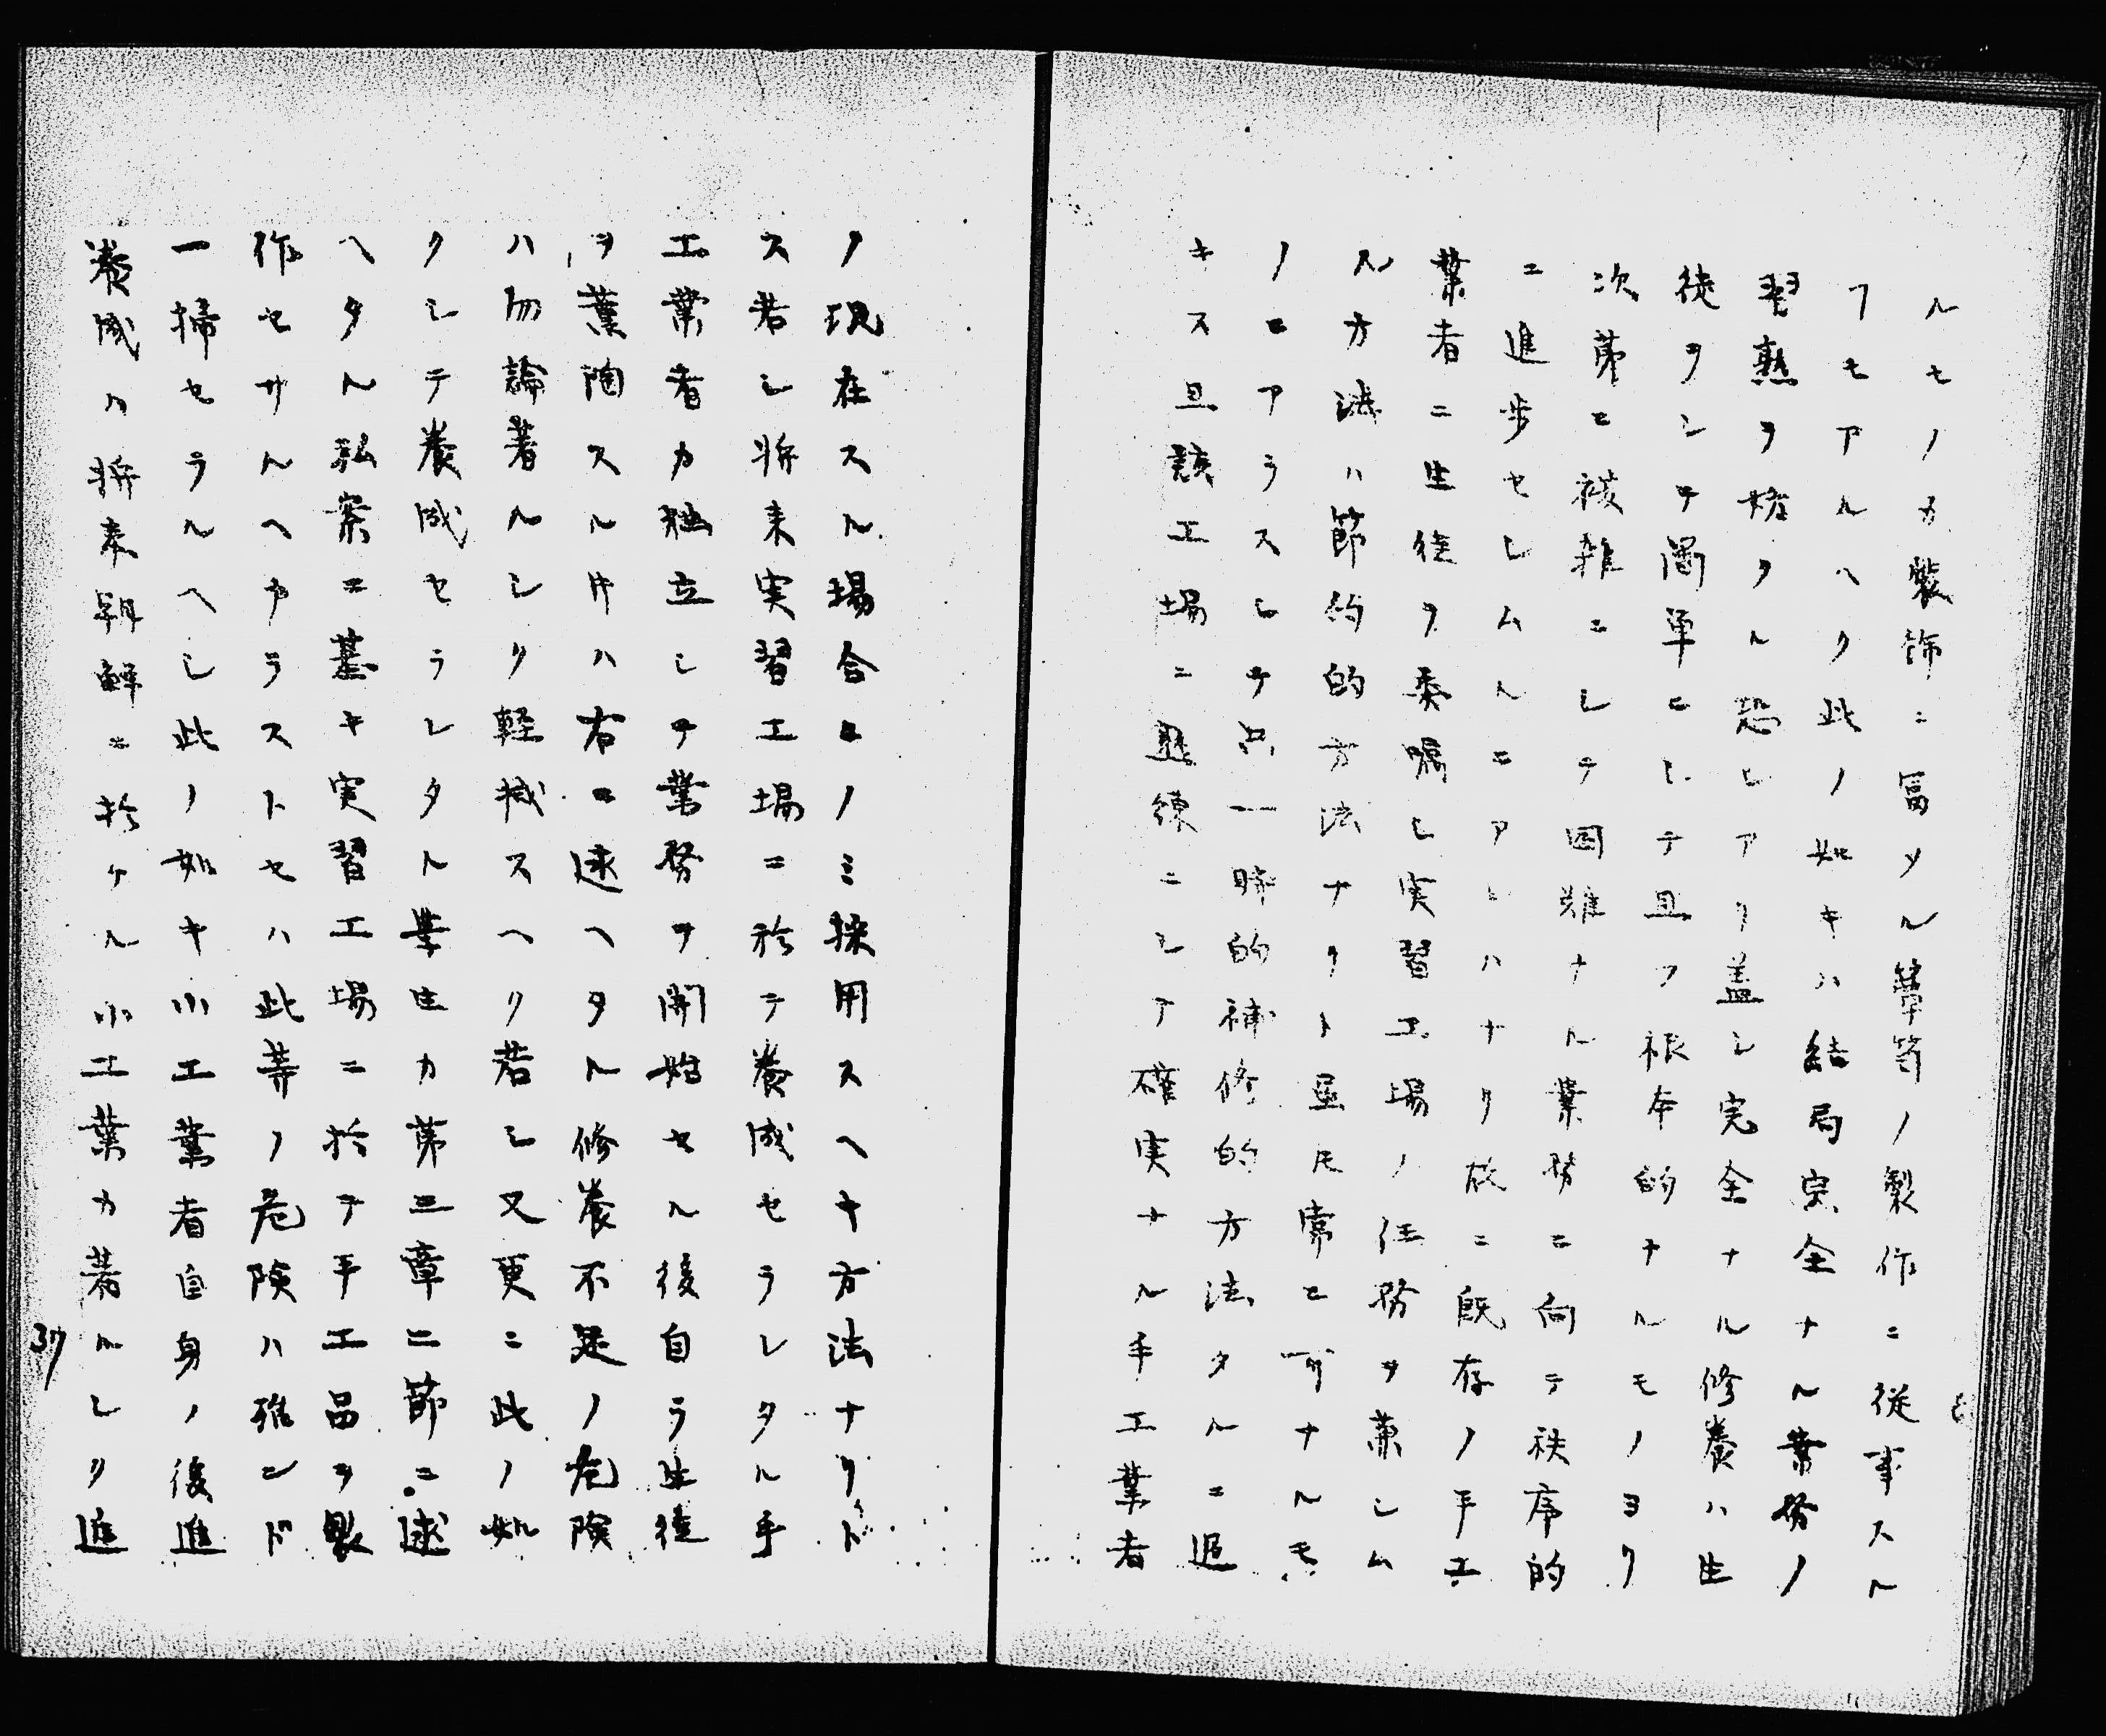 ルモノカ装飾ニ富メル簞笥ノ製作ニ従事スル
フモアルヘク此ノ如キハ結局完全ナル業務ノ
習熟ヲ妨クル恐レアリ蓋シ完全ナル修養ハ生
徒ヲシテ簡単ニシテ且ツ根本的ナルモノヨリ
次第ニ複雑ニシテ困難ナル業務ニ向テ秩序的
ニ進歩セシムルニアレハナリ故ニ既存ノ手工
業者ニ生徒ヲ委嘱シ実習工場ノ任務ヲ兼シム
ル方法ハ節約的方法ナリト虽モ常ニ可ナルモ
ノニアラスシテ只一時的補修的方法タルニ過
キス且該工場ニ熟練ニシテ確実ナル手工業者
ノ現在スル場合ニノミ採用スヘキ方法ナリト
ス若シ将来実習工場ニ於テ養成セラレタル手
工業者カ独立シテ業務ヲ開始セル後自ラ生徒
ヲ薫陶スル時ハ右ニ述ヘタル修養不足ノ危険
ハ勿論著ルシク軽減スヘク若シ又更ニ此ノ如
クシテ養成セラレタル学生カ第三章二節ニ述
ヘタル私案ニ基キ実習工場ニ於テ手工品ヲ製
作セサルヘカラストセハ此等ノ危険ハ殆ンド
一掃セラルヘシ此ノ如キ小工業者自身ノ後進
養成ハ将来朝鮮ニ於ケル小工業カ著ルシク進
37